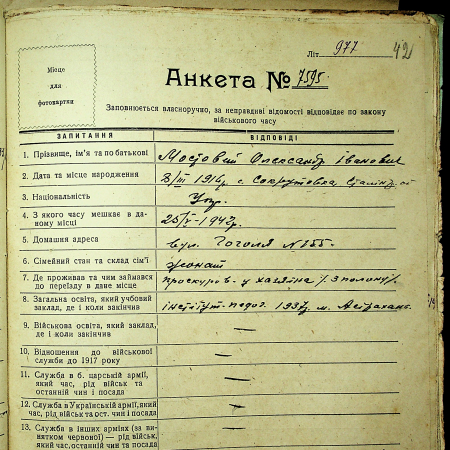 Літ 977 42
Місце
для
фотокартки
Анкета № 7595
Заповнюється власноручно, за неправдиві відомості відповідає по закону
військового часу
ЗАПИТАННЯ ВІДПОВІДІ
1. Прізвище, ім'я та по батькові Мостовий Олександр Іванович
2. Дата та місце народження 8/III 1916р. с. Сокрутовка
3. Національність Укр.
4. З якого часу мешкає в да-
ному місці 25/V-1942г.
5. Домашня адреса вул. Гоголя № 155.
6. Сімейний стан та склад сім'ї жонат
7. Де проживав та чим займався
до переїзду в дане місце проскуров - у хазяїна /з полону/.
8. Загальна освіта, який учбовий
заклад, де і коли закінчив інстітут. педог. 1937р. м. Астрахань.
9. Військова освіта, який заклад,
де і коли закінчив —
10. Відношення до військової
служби до 1917 року —
11. Служба в б. царській армії,
який час, рід військ та
останній чин і посада —
12. Служба в Українській армії, який
час, рід військ та ост. чин і посада —
13. Служба в інших арміях (за ви-
нятком червоної) — рід військ,
який час, останній чин та посада —